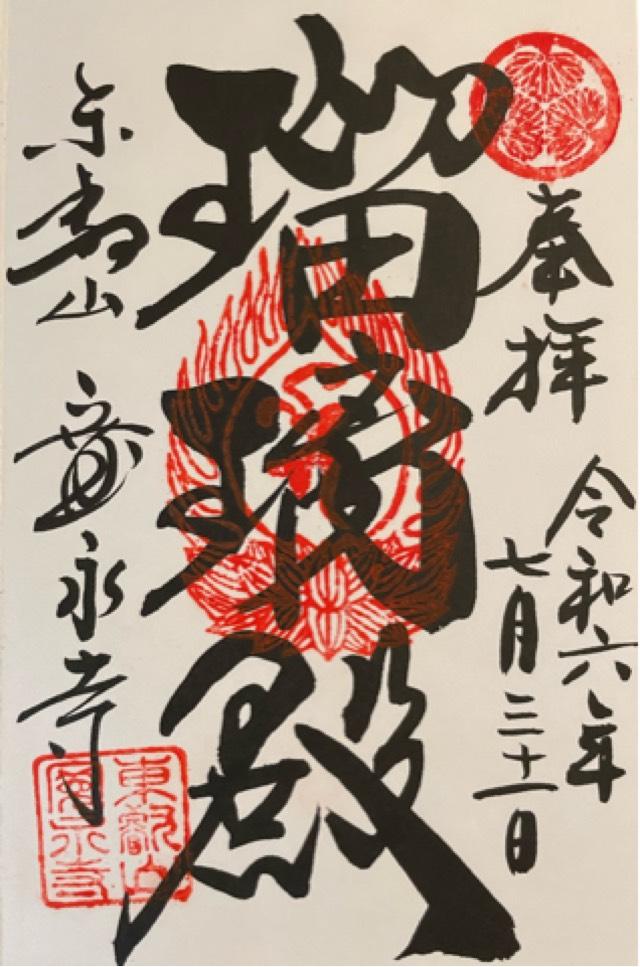 奉拝
令和六年
七月三十一日
瑠璃殿
東叡山 寛永寺
東叡山
寛永寺